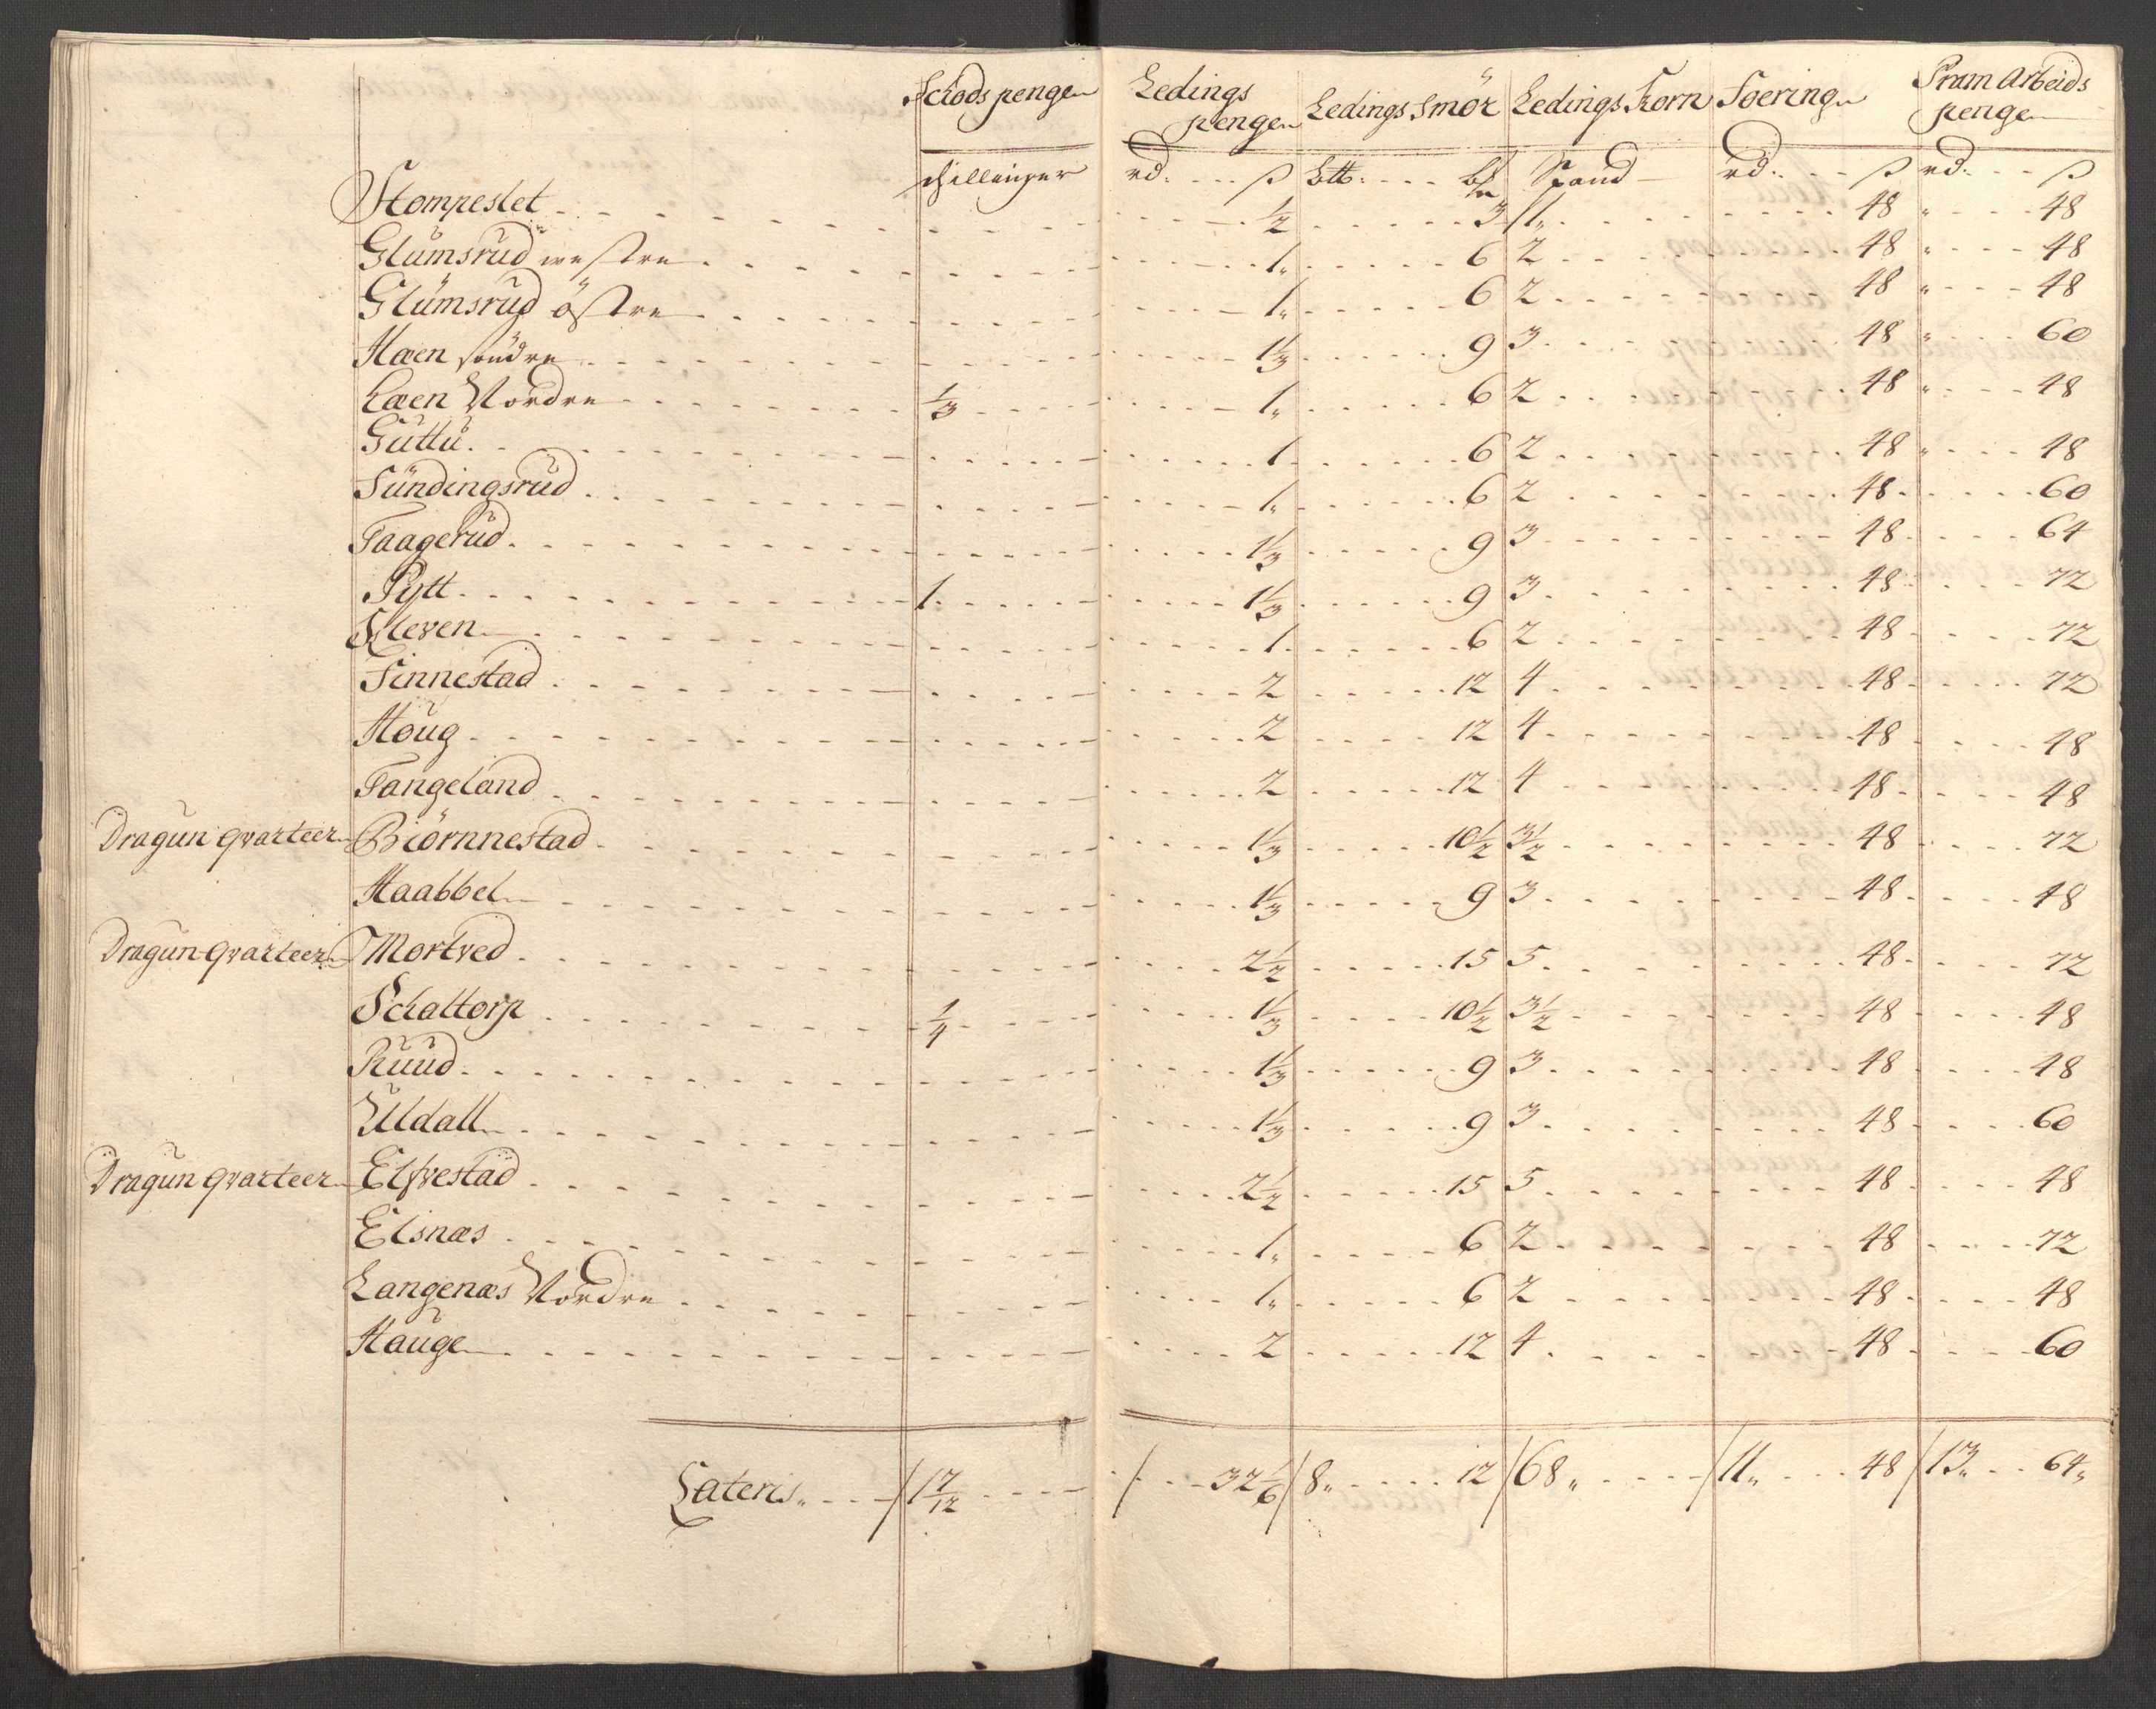 Schods penge Ledings penge Ledings Smör Ledings Korn Foering Pram Arbeids penge
schillinger rd. ß btt. bm Spand rd. ß rd. ß
Stompeslet 1/2 3 1 48 48
Glumsrud westre 1 6 2 48 48
Glumsrud östre 1 6 2 48 48
Haen söndre 1 1/3 9 3 48 60
Haen Nordre 1/3 1 6 2 48 48
Guttu 1 6 2 48 48
Sundingsrud 1 6 2 48 60
Taagerud 1 1/3 9 3 48 64
Pytt 1 1 1/3 9 3 48 72
Kleven 1 6 2 48 72
Finnestad 2 12 4 48 72
Houg 2 12 4 48 48
Tangeland 2 12 4 48 48
Dragun qvarteer Biörnnestad 1 1/3 10 1/2 3 1/2 48 72
Haabbel 1 1/3 9 3 48 48
Dragun qvarteer Mortved 2 1/2 15 5 48 72
Schaltorp 1/4 1 1/3 10 1/2 3 1/2 48 48
Ruud 1 1/3 9 3 48 48
Uldall 1 1/3 9 3 48 60
Dragun qvarteer Elfvestad 2 1/2 15 5 48 48
Elsnæs 1 6 2 48 72
Langenæs Nordre 1 6 2 48 48
Hauge 2 12 4 48 60
Lateris 1 7/12 32 1/6 8 12 68 11 48 13 64